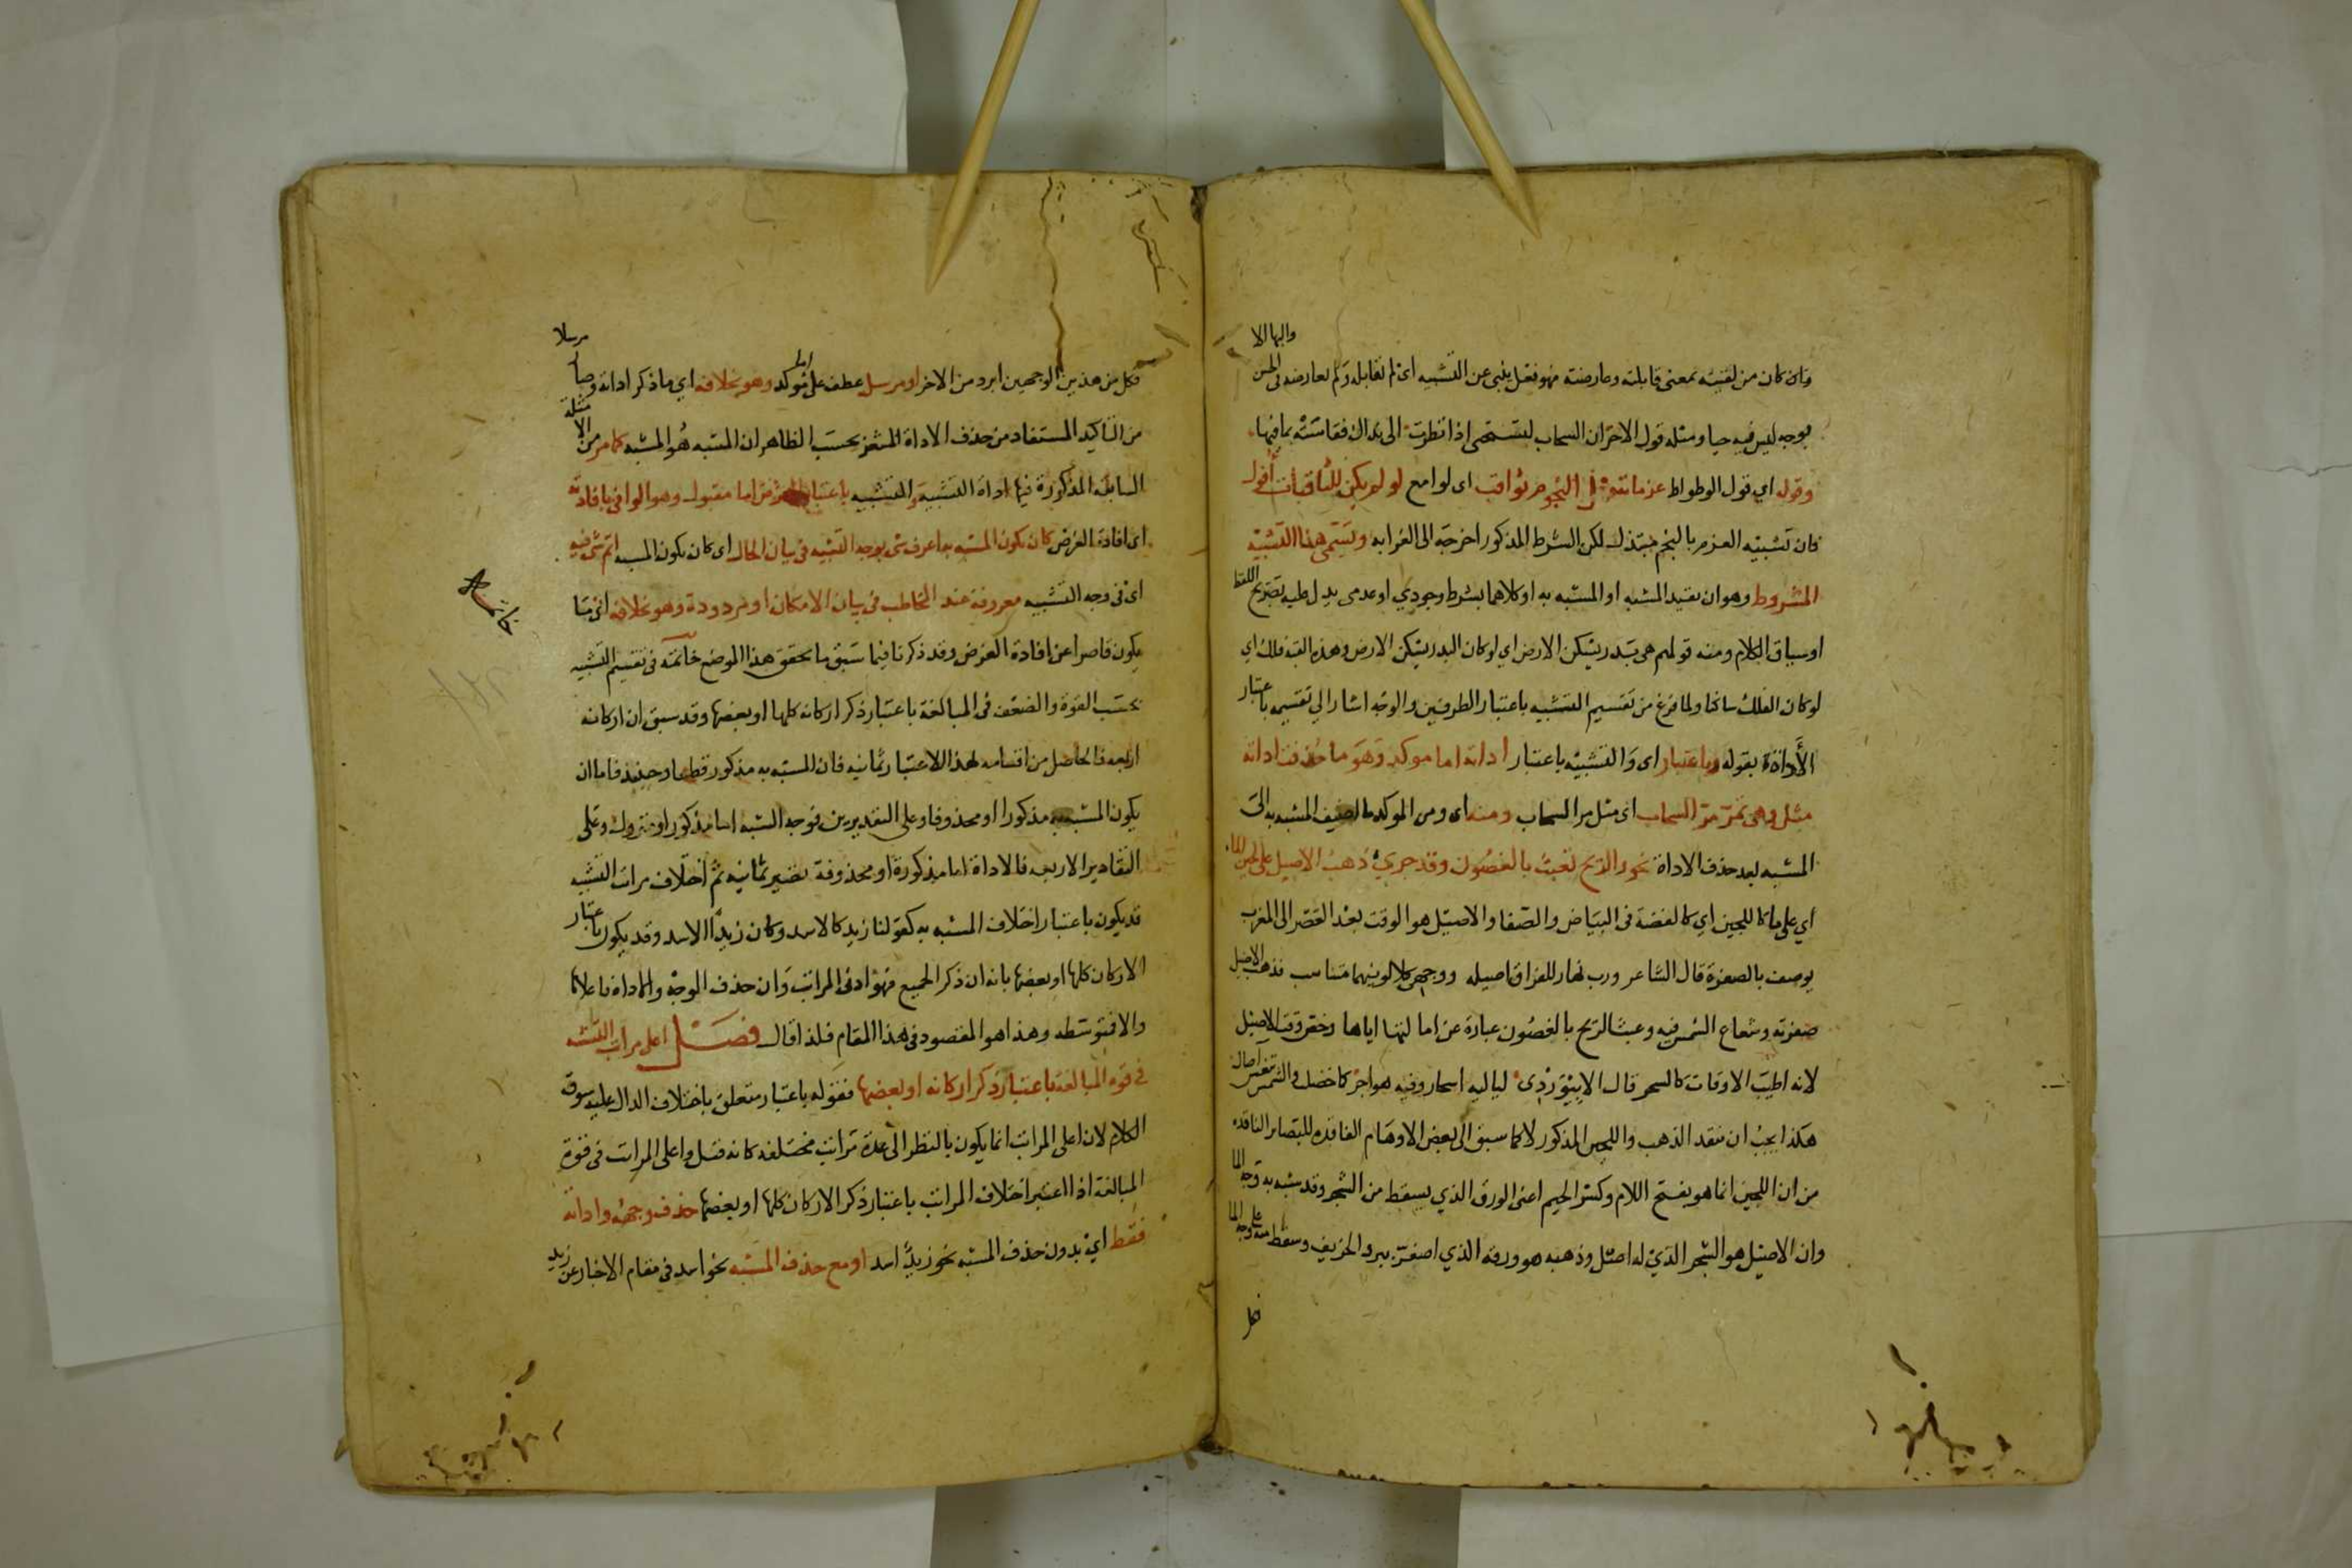 وان كان من لقيته بمعنى قابلته وعارضته فهو فعل ينبى عن التشبيه اى لم تقابله ولم تعارضه فى الحسن والبها الا
بوجه ليس فيه حيا ومثله قول الاخر ان السحاب لتستحيى اذا نظرت الى نداك فقاسته بما فيها
وقوله اي قول الوطواط عزماته مثل النجوم ثواقب اى لوامع لو لم يكن للثاقبات أفول
فان تشبيه العزم بالنجم مبتذل لكن الشرط المذكور اخرجه الى الغرابه ويسمى هذا التشبيه
المشروط وهو ان يقيد المشبه او المشبه به او كلاهما بشرط وجودي او عدمى يدل عليه بصريح اللفظ
او سياق الكلام ومنه قولهم هى بدر يسكن الارض اي لو كان البدر يسكن الارض وهذه القبة فلك اي
لو كان الفلك ساكنا ولما فرغ من تقسيم التشبيه باعتبار الطرفين والوجه اشار الي تقسيمه باعتبار
الأداة بقوله وباعتبار اى والتشبيه باعتبار اداته اما موكد وهو ما حذفت اداته
مثل وهى تمر مر السحاب اى مثل مر السحاب ومنه اى ومن الموكد ما اضيف المشبه به الى
المشبه بعد حذف الاداة نحو والريح تعبث بالغصون وقد جري ذهب الاصيل على لجين الماء
أي على ما كاللجين اي كالفضة فى البياض والصفا والاصيل هو الوقت بعد العصر الى المغرب
يوصف بالصفرة قال الشاعر ورب نهار للفراق اصيله ووجهى كلا لونيهما متناسب فذهب الاصيل
صفرته وشعاع الشمس فيه وعبث الريح بالغصون عبارة عن امالتها اياها وخص وقت الاصيل
لانه اطيب الاوقات كالسحر قال الابيوردي لياليه اسحار وفيه هواجر كاخضل والشمس
هكذا يجب ان ينقد الذهب واللجين المذكور لا كما سبق الى بعض الاوهام الفاقده للبصاير الناقده
من ان اللجين انما هو بفتح اللام وكسر الجيم اعنى الورق الذي يسقط من الشجر وقد شبه به وجه الما
وان الاصيل هو الشجر الذي له اصل وذهبه هو ورقه الذي اصفر ببرد الخريف وسقط منه على وجه الما
فكل
فكل من هذين الوجهين ابرد من الاخر او مرسل عطف على اما موكد وهو بخلافه اي ما ذكر اداته وصار مرسلا
من التاكيد المستفاد من حذف الاداة المشعر بحسب الظاهر ان المشبه هو المشبه به كما مر من الامثلة
السابقة المذكورة فيها اداة التشبيه والتشبيه باعتبار الغرض اما مقبول وهو الوافى بافادته
اى افادة الغرض كان يكون المشبه به اعرف شى بوجه التشبيه فى بيان الحال اى كان يكون المشبه اتم شى فيه
اى فى وجه التشبيه معروفة عند المخاطب فى بيان الامكان او مردودة وهو بخلافه اى ما
يكون قاصرا عن افادة الغرض وقد ذكرنا فيما سبق ما يحقق هذا الموضع خاتمة فى تقسيم التشبيه
بحسب القوة والضعف فى المبالغة باعتبار ذكر اركانه كلها او بعضها وقد سبق ان اركانه
اربعه فالحاصل من اقسامه لهذا الاعتبار ثمانيه فان المشبه به مذكور قطعا وحينئذ فاما ان
يكون المشبه مذكورا او محذوفا وعلى التقديرين فوجه الشبه اما مذكور او متروك وعلى
التقادير الاربعه فالاداة اما مذكورة او محذوفة تصير ثمانيه ثم اختلاف مراتب التشبيه
قد يكون باعتبار اختلاف المشبه به كقولنا زيد كالاسد وكان زيدا الاسد وقد يكون باعتبار
الاركان كلها او بعضها بانه ان ذكر الجميع فهو ادنى المراتب وان حذف الوجه والاداة فاعلاها
والا فمتوسطه وهذا هو المقصود فى هذا المقام فلذا قال فصل اعلى مراتب التشبيه
فى قوة المبالغة باعتبار ذكر اركانه او بعضها فقوله باعتبار متعلق باختلاف الدال عليه سوق
الكلام لان اعلى المراتب انما يكون بالنظر الى عدة مراتب مختلفه كانه قيل واعلى المراتب فى قوة
المبالغة اذا اعتبر اختلاف المراتب باعتبار ذكر الاركان كلها او بعضها حذف وجهه واداته
فقط اي بدون حذف المشبه نحو زيد اسد او مع حذف المشبه نحو اسد في مقام الاخبار عن زيد
خاتمة